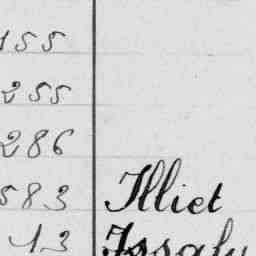 155
255
286
583 Illiet
13 Issaly